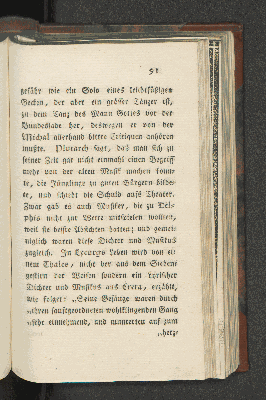 91
gefähr wie ein Solo eines leichtfüßigen
Gecken, der aber ein großer Tänzer ist,
zu dem Tanz des Mann Gottes vor der
Bundeslade her, deswegen er von der
Michal allerhand bittre Critiquen anhören
mußte. Plutarch sagt, daß man sich zu
seiner Zeit gar nicht einmahl einen Begriff
mehr von der alten Musik machen konn-
te, die Jünglinge zu guten Bürgern bilde-
te, und schiebt die Schuld aufs Theater.
Zwar gab es auch Musiker, die zu Del-
phis nicht zur Wette mitspielen wollten,
weil sie beßre Absichten hatten; und gemei-
niglich waren diese Dichter und Musikus
zugleich. In Lycurgs Leben wird von ei-
nem Thales, nicht der aus dem Sieben-
gestirn der Weisen sondern ein lyrischer
Dichter und Musikus aus Creta, erzählt,
wie folget: „Seine Gesänge waren durch
ihren sanftgeordneten wohlklingenden Gang
sehr einnehmend, und munterten auf zum
„herz-